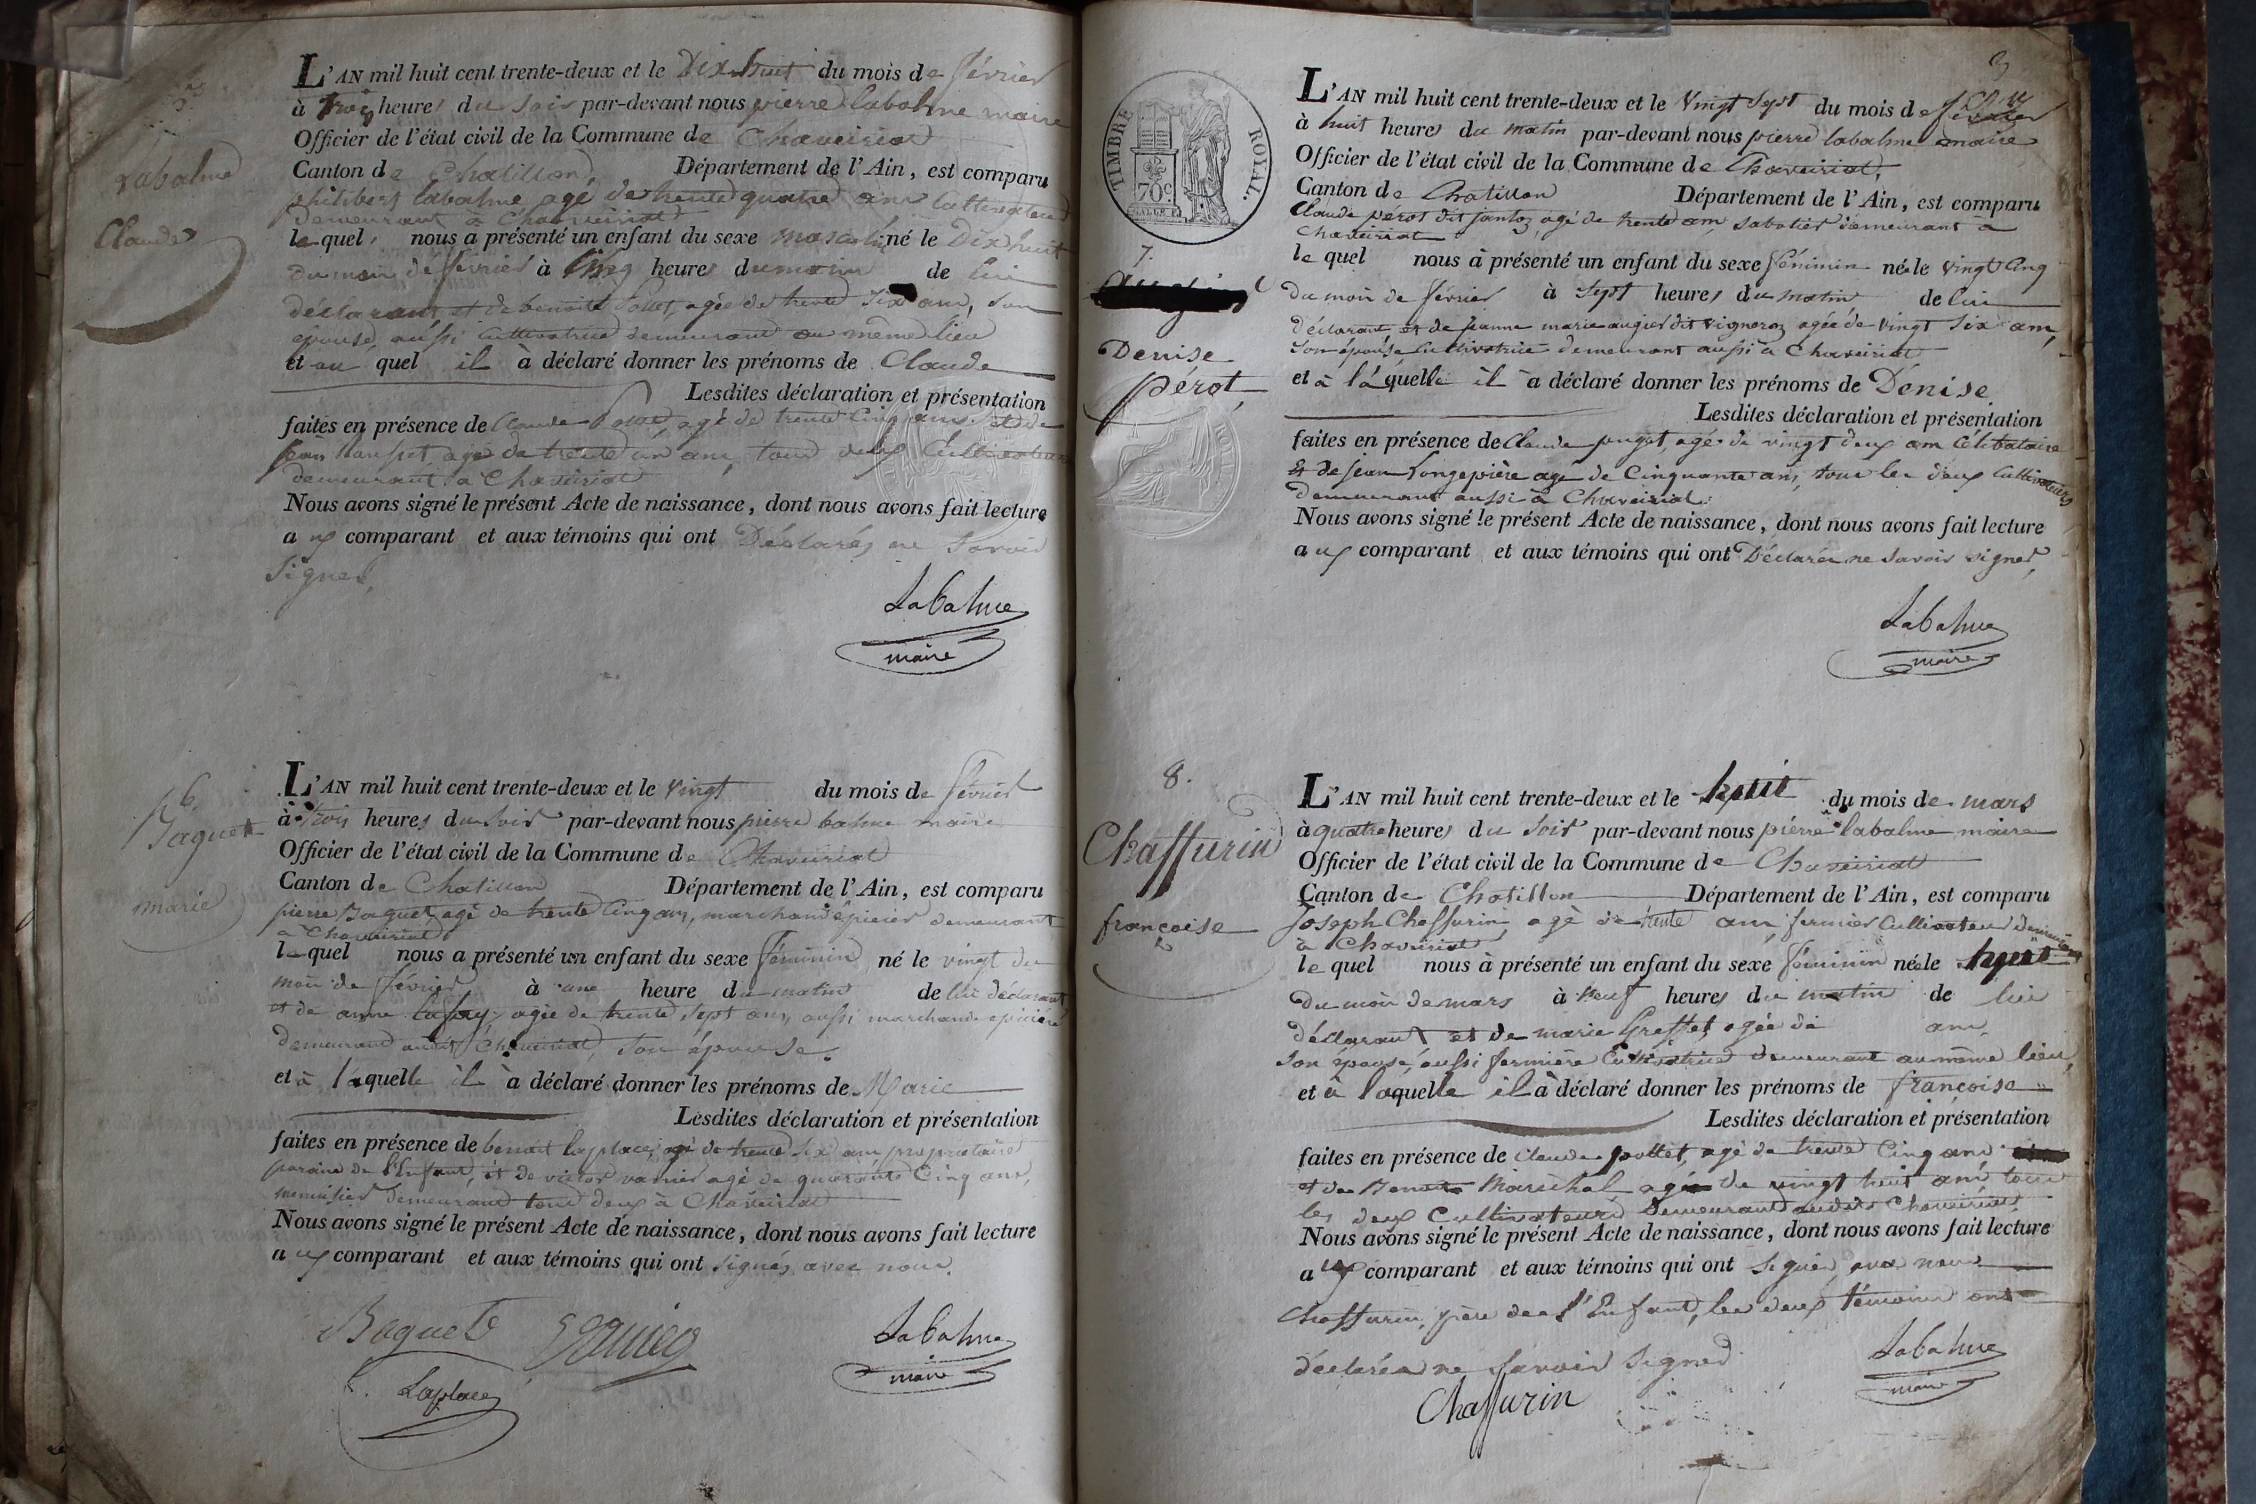 5.
Labalme
Claude
L'AN mil huit cent trente-deux et le Dix huit du mois de février
à trois heures du soir par-devant nous pierre labalme maire
Officier de l'état civil de la Commune de Chaveiriat
Canton de Chatillon Département de l'Ain, est comparu
philibert labalme agé de trente quatre ans cultivateur
demeurant à Chaveiriat
le quel nous a présenté un enfant du sexe masculin né le Dix huit
du mois de février à Cinq heures du matin de lui
déclarant et de benoite agée de trente six ans, son
épouse, aussi Cultivatrice demeurant au même lieu
et au quel il à déclaré donner les prénoms de Claude
Lesdites déclaration et présentation
faites en présence de Claude agé de trente Cinq ans et de
agé de trente un ans, tous deux Cultivateurs
demeurant à Chaveiriat
Nous avons signé le présent Acte de naissance, dont nous avons fait lecture
aux comparant et aux témoins qui ont Déclarés ne Savoir
Signer,
Labalme
maire
6.
Baquet
marie
L'AN mil huit cent trente-deux et le vingt du mois de février
à trois heures du soir par-devant nous pierre balme maire
Officier de l'état civil de la Commune de Chaveiriat
Canton de Chatillon Département de l'Ain, est comparu
pierre Baquet, agé de trente Cinq ans, marchand épicier demeurant
à Chaveiriat
le quel nous a présenté un enfant du sexe féminin né le vingt du
mois de février à une heure du matin de lui déclarant
et de anne lafay, agée de trente sept ans, aussi marchande épicière
demeurand audit Chaveiriat, son épouse.
et à laquelle il à déclaré donner les prénoms de Marie
Lesdites déclaration et présentation
faites en présence de benoit laplace, agé de trente six ans propriétaire
paraine de l'Enfant, et de victor agé de quarante Cinq ans,
menuisier demeurand tous deux à Chaveiriat
Nous avons signé le présent Acte de naissance, dont nous avons fait lecture
aux comparant et aux témoins qui ont signés avec nous.
Baquet
Labalme
maire
Laplace
3
TIMBRE ROYAL.
70 c.
7.
Denise
pérot,
L'AN mil huit cent trente-deux et le vingt sept du mois de février
à huit heures du matin par-devant nous pierre labalme maire
Officier de l'état civil de la Commune de Chaveiriat,
Canton de Chatillon Département de l'Ain, est comparu
Claude pérot dit janton, agé de trente ans, sabotier demeurant à
Chaveiriat
le quel nous à présenté un enfant du sexe féminin née le vingt Cinq
du mois de février à sept heures du matin de lui
déclarant et de jeanne marie augier dit vigneron agée de vingt six ans,
son épouse Cultivatrice demeurant aussi à Chaveiriat
et à laquelle il a déclaré donner les prénoms de Denise
Lesdites déclaration et présentation
faites en présence de Claude puget, agé de vingt deux ans Célibataire
et de jean longepière agé de Cinquante ans, tous les deux Cultivateurs
demeurant aussi à Chaveiriat.
Nous avons signé le présent Acte de naissance, dont nous avons fait lecture
aux comparant et aux témoins qui ont Déclarés ne Savoir signer,
Labalme
maire
8.
Chaffurin
françoise
L'AN mil huit cent trente-deux et le huit du mois de mars
à quatre heures du soir par-devant nous pierre labalme maire
Officier de l'état civil de la Commune de Chaveiriat
Canton de Chatillon Département de l'Ain, est comparu
Joseph Chaffurin agé de trente ans fermier Cultivateur demeurant
à Chaveiriat
le quel nous à présenté un enfant du sexe féminin née le huit
du mois de mars à neuf heures du matin de lui
déclarant et de marie Greffet, agée de ans,
son épouse, aussi fermière Cultivatrice demeurant au même lieu,
et à laquelle il à déclaré donner les prénoms de françoise
Lesdites déclaration et présentation
faites en présence de Claude pollet, agé de trente Cinq ans
et de Benoit Maréchal, agé de vingt huit ans tous
les deux Cultivateurs demeurant audit Chaveiriat,
Nous avons signé le présent Acte de naissance, dont nous avons fait lecture
aux comparant et aux témoins qui ont signé avec nous
Chaffurin, père de l'Enfant, les deux témoins ont
déclarés ne savoir signer
Labalme
maire
Chaffurin